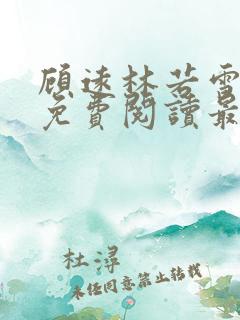 顧遠林若雪
免費閱讀最
杜潯
未經同意禁止轉載